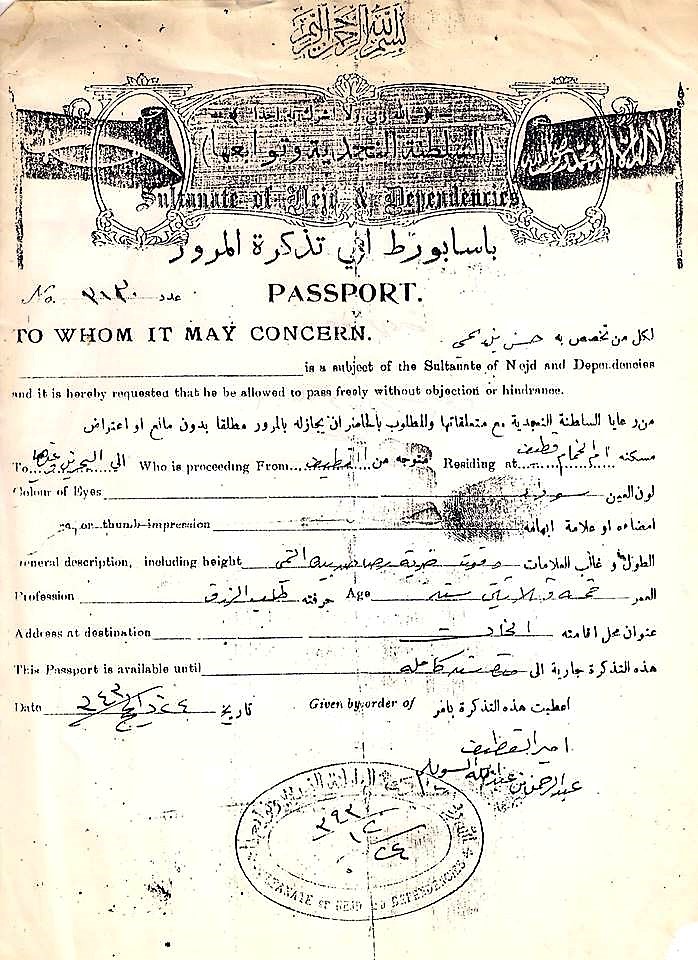 بسم الله الرحمن الرحيم
الله ربي ولا اشرك به احدا
(السلطنة النجدية وتوابعها)
لا إله إلا الله محمد رسول الله
Sultanate of Nejd & Dependencies
باسابورط اي تذكرة المرور
No. عدد
PASSPORT.
TO WHOM IT MAY CONCERN. لكل من تختص به حسن بن
is a subject of the Sultanate of Nejd and Dependencies
and it is hereby requested that he be allowed to pass freely without objection or hindrance.
من رعايا السلطنة النجدية مع متعلقاتها والمطلوب بالحاضر ان يجاز له بالمرور مطلقا بدون مانع او اعتراض
مسكنه ام الحمام قطيف Residing at متوجه من القطيف Who is proceeding From الي البحرين To
Colour of Eyes سودا لون العين
or thumb-impression امضاءه او علامة ابهامه
General description, including height الطول و غالب العلامات
Profession طلب الرزق حرفته Age خمسة وثلاثين سنة العمر
Address at destination عنوان محل اقامته
This Passport is available until سنة كاملة هذه التذكرة جارية الى
Date تاريخ Given by order of اعطيت هذه التذكرة بامر
امير القطيف
عبدالرحمن بن عبدالله السويلم
SULTANATE OF NEJD AND DEPENDENCIES